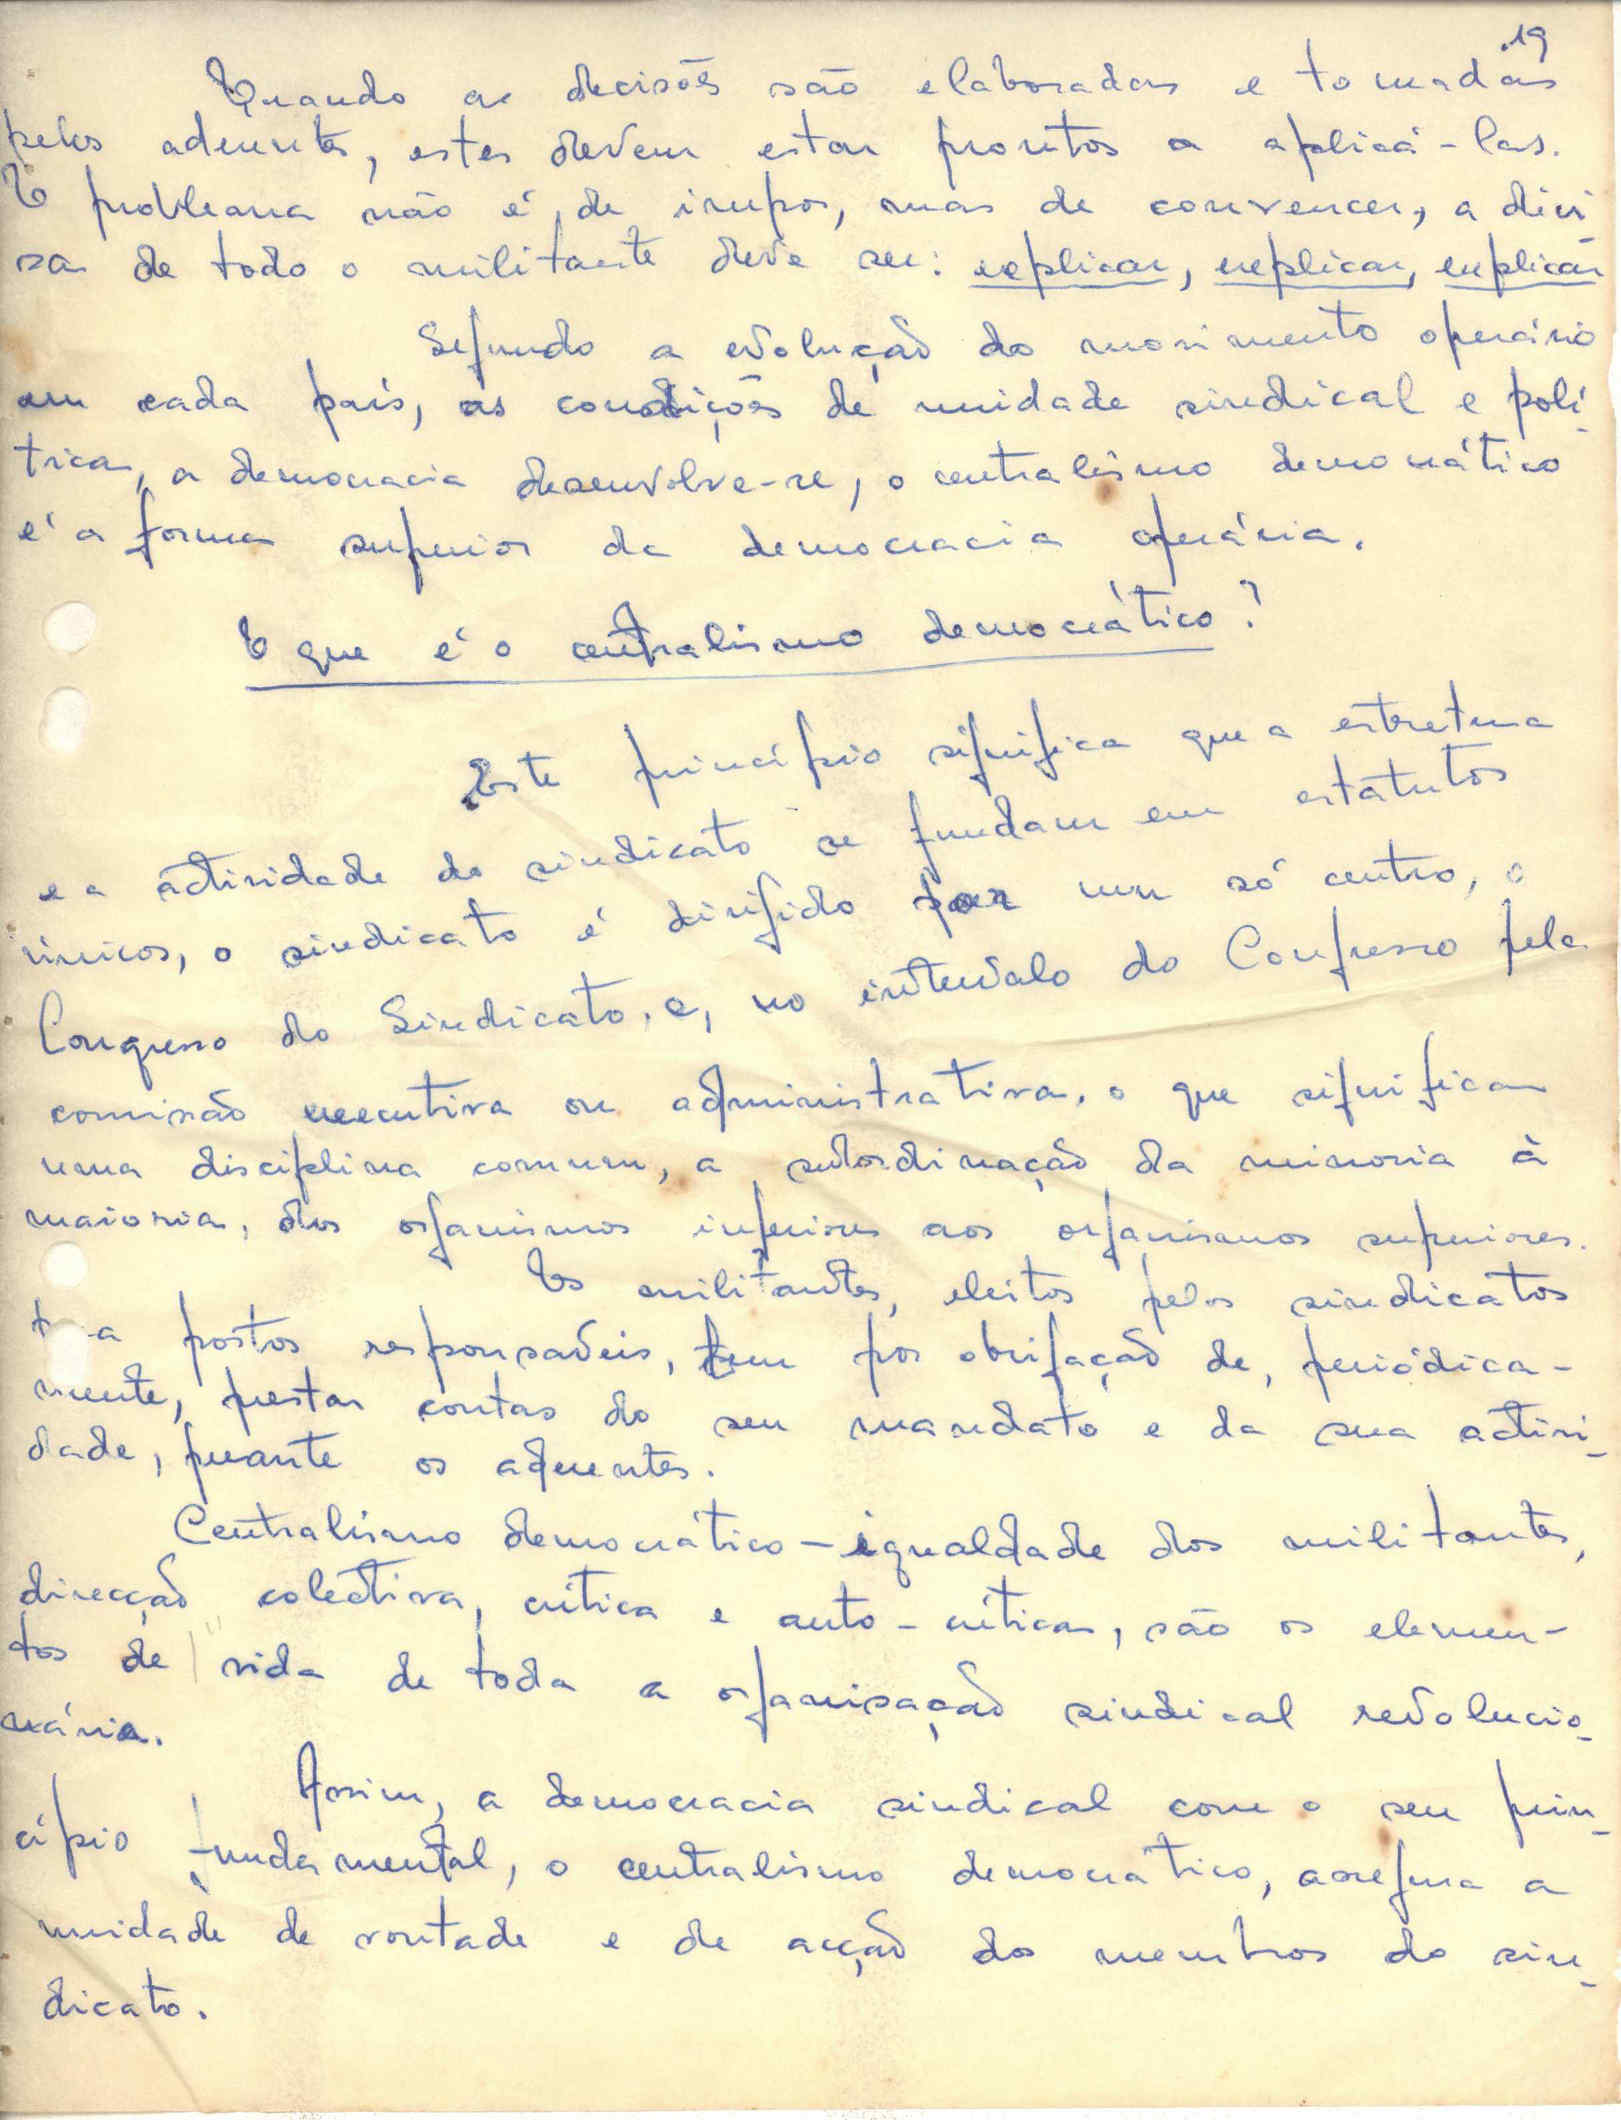 19
Quando as decisões são elaboradas e tomadas
pelos aderentes, estes devem estar prontos a aplicá-las.
O problema não é, de impor, mas de convencer, a divi
sa de todo o militante deve ser: explicar, explicar, explicar
Segundo a evolução do movimento operário
em cada país, as condições de unidade sindical e polí-
tica, a democracia desenvolve-se, o centralismo democrático
é a forma superior da democracia operária.
O que é o centralismo democrático?
Este princípio significa que a estrutura
e a actividade do sindicato se fundam em estatutos
únicos, o sindicato é dirigido por um só centro, o
Congresso do Sindicato, e, no intervalo do Congresso pela
comissão executiva ou administrativa, o que significa
uma disciplina comum, a subordinação da minoria à
maioria, dos organismos inferiores aos organismos superiores.
Os militantes, eleitos pelos sindicatos
a postos responsáveis, tem por obrigação de, periódica-
mente, prestar contas do seu mandato e da sua activi-
dade, perante os aderentes.
Centralismo democrático - igualdade dos militantes,
direcção colectiva, crítica e auto-crítica, são os elemen-
tos de vida de toda a organização sindical revolucio-
nária.
Assim, a democracia sindical com o seu prin-
cípio fundamental, o centralismo democrático, assegura a
unidade de vontade e de acção dos membros do sin-
dicato.